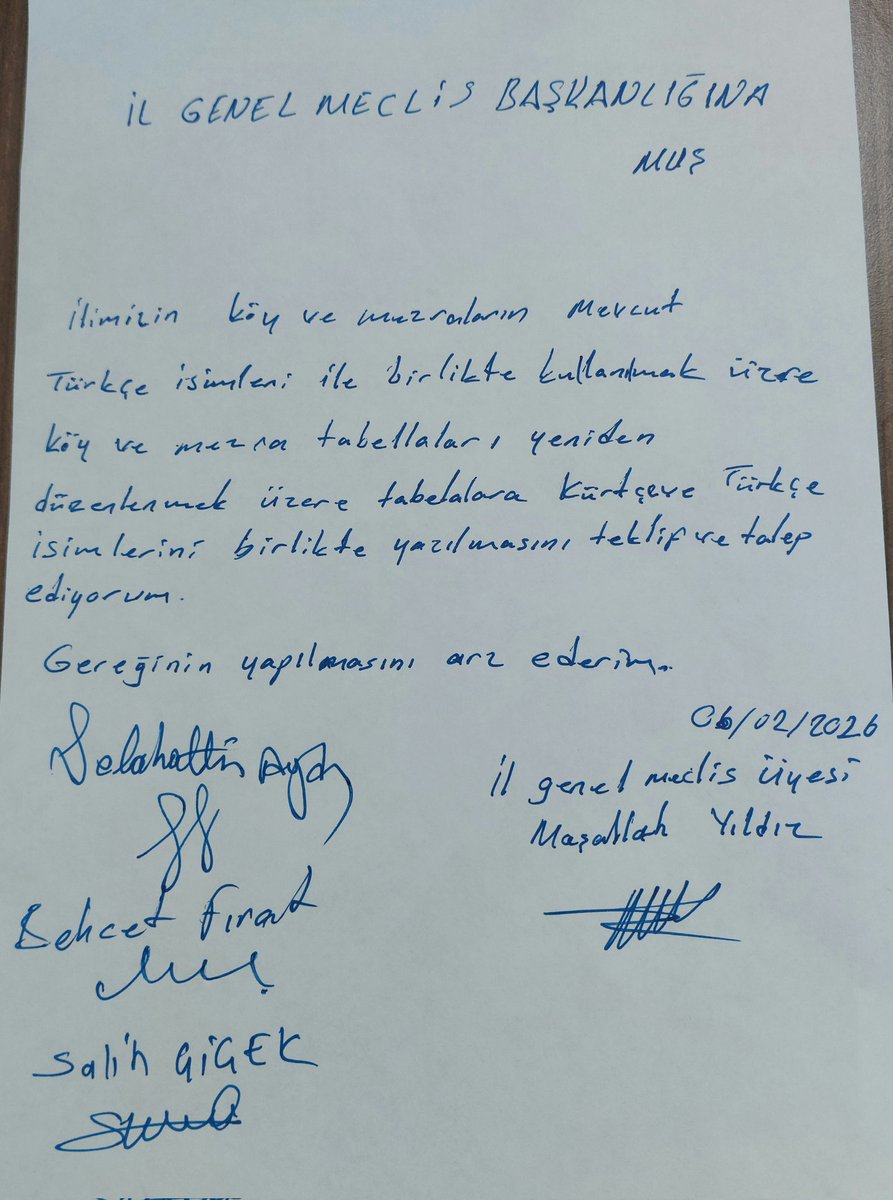 İL GENEL MECLİS BAŞKANLIĞINA
MUŞ
İlimizin köy ve mezraların Mevcut
Türkçe isimleri ile birlikte kullanılmak üzere
köy ve mezra tabellaları yeniden
düzenlenmek üzere tabelalara Kürtçe ve Türkçe
isimlerini birlikte yazılmasını teklif ve talep
ediyorum.
Gereğinin yapılmasını arz ederim.
06/02/2026
il genel meclis üyesi
Maşallah Yıldız
Selahattin
Behcet Fırat
Salih ÇİÇEK